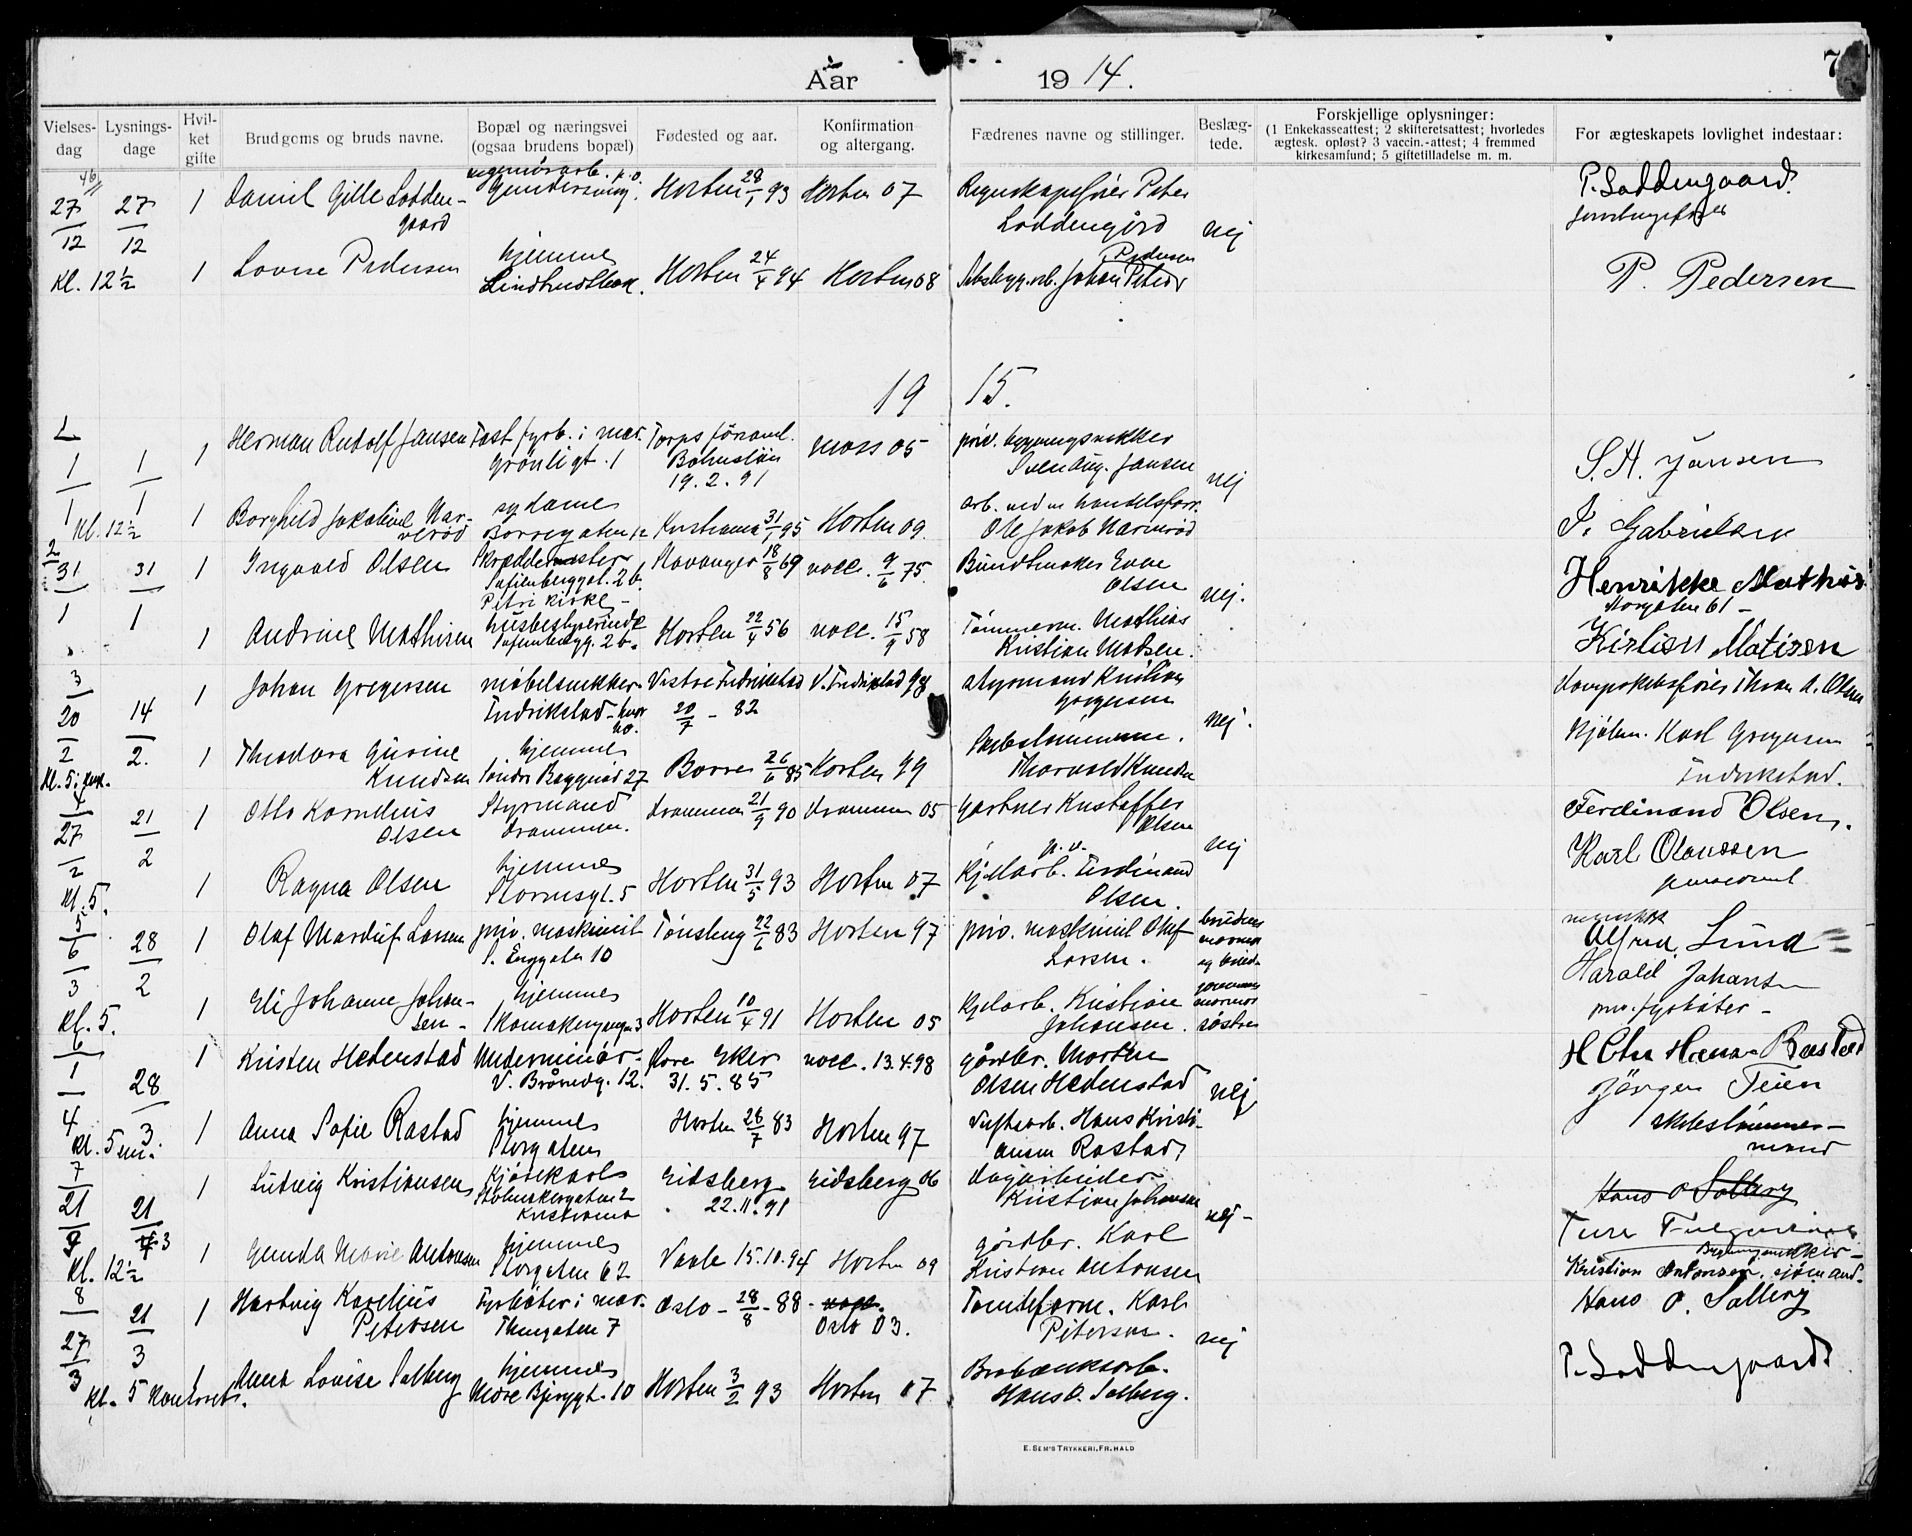 Aar 1914.
7
Vielses-dag
Lysnings-dage
Hvil-ket gifte
Brudgoms og bruds navne.
Bopæl og næringsvei (ogsaa brudens bopæl)
Fødested og aar.
Konfirmation og altergang.
Fædrenes navne og stillinger.
Beslæg-tede.
Forskjellige oplysninger:
(1 Enkekasseattest; 2 skifteretsattest; hvorledes
ægtesk. opløst? 3 vaccin.-attest; 4 fremmed
kirkesamfund; 5 giftetilladelse m. m.
For ægteskapets lovlighet indestaar:
46
27/12 27/12 1 Daniel Gille Lodden-gaard Horten 28/1 93 Horten 07 Regnskapsfører Peter Loddengård nej P. Loddengaard.
Kl. 12½ 1 Lovise Pedersen hjemme Horten 24/4 94 Horten 08 Johan Peter Pedersen P. Pedersen
19 15.
1
1/1 1/1 1 Herman Rudolf Jansen Fast fyrb. i mar. Grönligt. 1 Bohuslän 19.2.91 Moss 05 priv. bygningsnikker Sven Aug. Jansen nej S. A. Jansen
Kl. 12½ 1 Borghild Jakobine Nar-verød sydame Borregaten 12 Kristiania 31/1 95 Horten 09. Ole Jakob Narverød J. Gabrielsen
2
31/1 31/1 1 Ingvald Olsen Skræddermester Sofienberggt. 2b. Petri kirke - Stavanger 18/8 69 vacc. 9/6 75. Bundtmaker Even Olsen nej. Henrikke Mathis Storgaten 61 -
1 Andrine Mathisen husbestyrerinde Sofienbergg. 2b. Horten 22/4 56 vacc. 15/9 58 Tømmerm. Mathias Kristian Madsen. Kirstian Matisen
3
20/2 14/2. 1 Johan Gregersen møbelsnekker Fredrikstad Vestre Fredrikstad 20/7 - 82 V. Fredrikstad 98 styrmand Kristian Gregersen nej.
Kl. 5 1 Theodora Gurine Knudsen hjemme Søndre Braggerød 27 Borre 26/6 85 Horten 99 Skibstømmerm. Thorvald Knudsen Karl Gregersen Fredrikstad.
4
27/2 21/2 1 Otto Kornelius Olsen Styrmand Drammen. Drammen 21/9 90 Drammen 05 gartner Kristoffer Olsen nej Ferdinand Olsen.
Kl. 5. 1 Ragna Olsen hjemme Stormsgt. 5 Horten 31/5 93 Horten 07 Kjelarb. Ferdinand Olsen. Karl Olaussen
5
6/3 28/2 1 Olaf Larsen priv. maskinist S. Enggaten 10 Tønsberg 22/6 83 Horten 97 priv. maskinist Oluf Larsen. brudens mormor og brud-gommens mormor søstre Alfred Lund
Kl. 5. 1 Eli Johanne Johan-sen - hjemme Skomakergangen 3 Horten 10/4 91 Horten 05 Kjelarb. Kristian Johansen. Harald Johansen priv. fyrbøter -
6
1/4 28/3 1 Kristen Hedenstad Underminør V. Brårudg. 12. Øvre Eker 31.5.85 vacc. 13.4.98 gårdbr. Morten Olsen Hedenstad nej
Kl. 5 em. 1 Anna Sofie Rastad hjemme Storgaten Horten 26/7 83 Horten 97 Hans Kristi-ansen Rastad Jørgen Teien skibstømmer-mand
7
21/3 21/3 1 Ludvig Kristiansen Kjørekarl Kristiania Eidsberg 22.11.91 Eidsberg 06 dagarbeider Kristian Johansen nej - Hans O Solberg
Kl. 12½ 1 Gunda Marie Antonsen hjemme Storgaten 62 Vaale 15.10.94 Horten 09 gårdbr. Karl Kristian Antonsen Kristian Antonsen. sjömand.
8
27/3 21/3 1 Hartvig Karelius Petersen Fyrbøter i mar. Thuegaten 7 Oslo - 28/8 - 88 - vacc. Oslo 03. Karl Petersen. nej Hans O. Solberg
Kl. 5 Kontoret. 1 Anna Lovise Solberg hjemme Nedre Bjerggt. 10 Horten 3/2 93 Horten 07 Hans O. Solberg. P. Loddengaard.
E. SEM'S TRYKKERI, FR.HALD